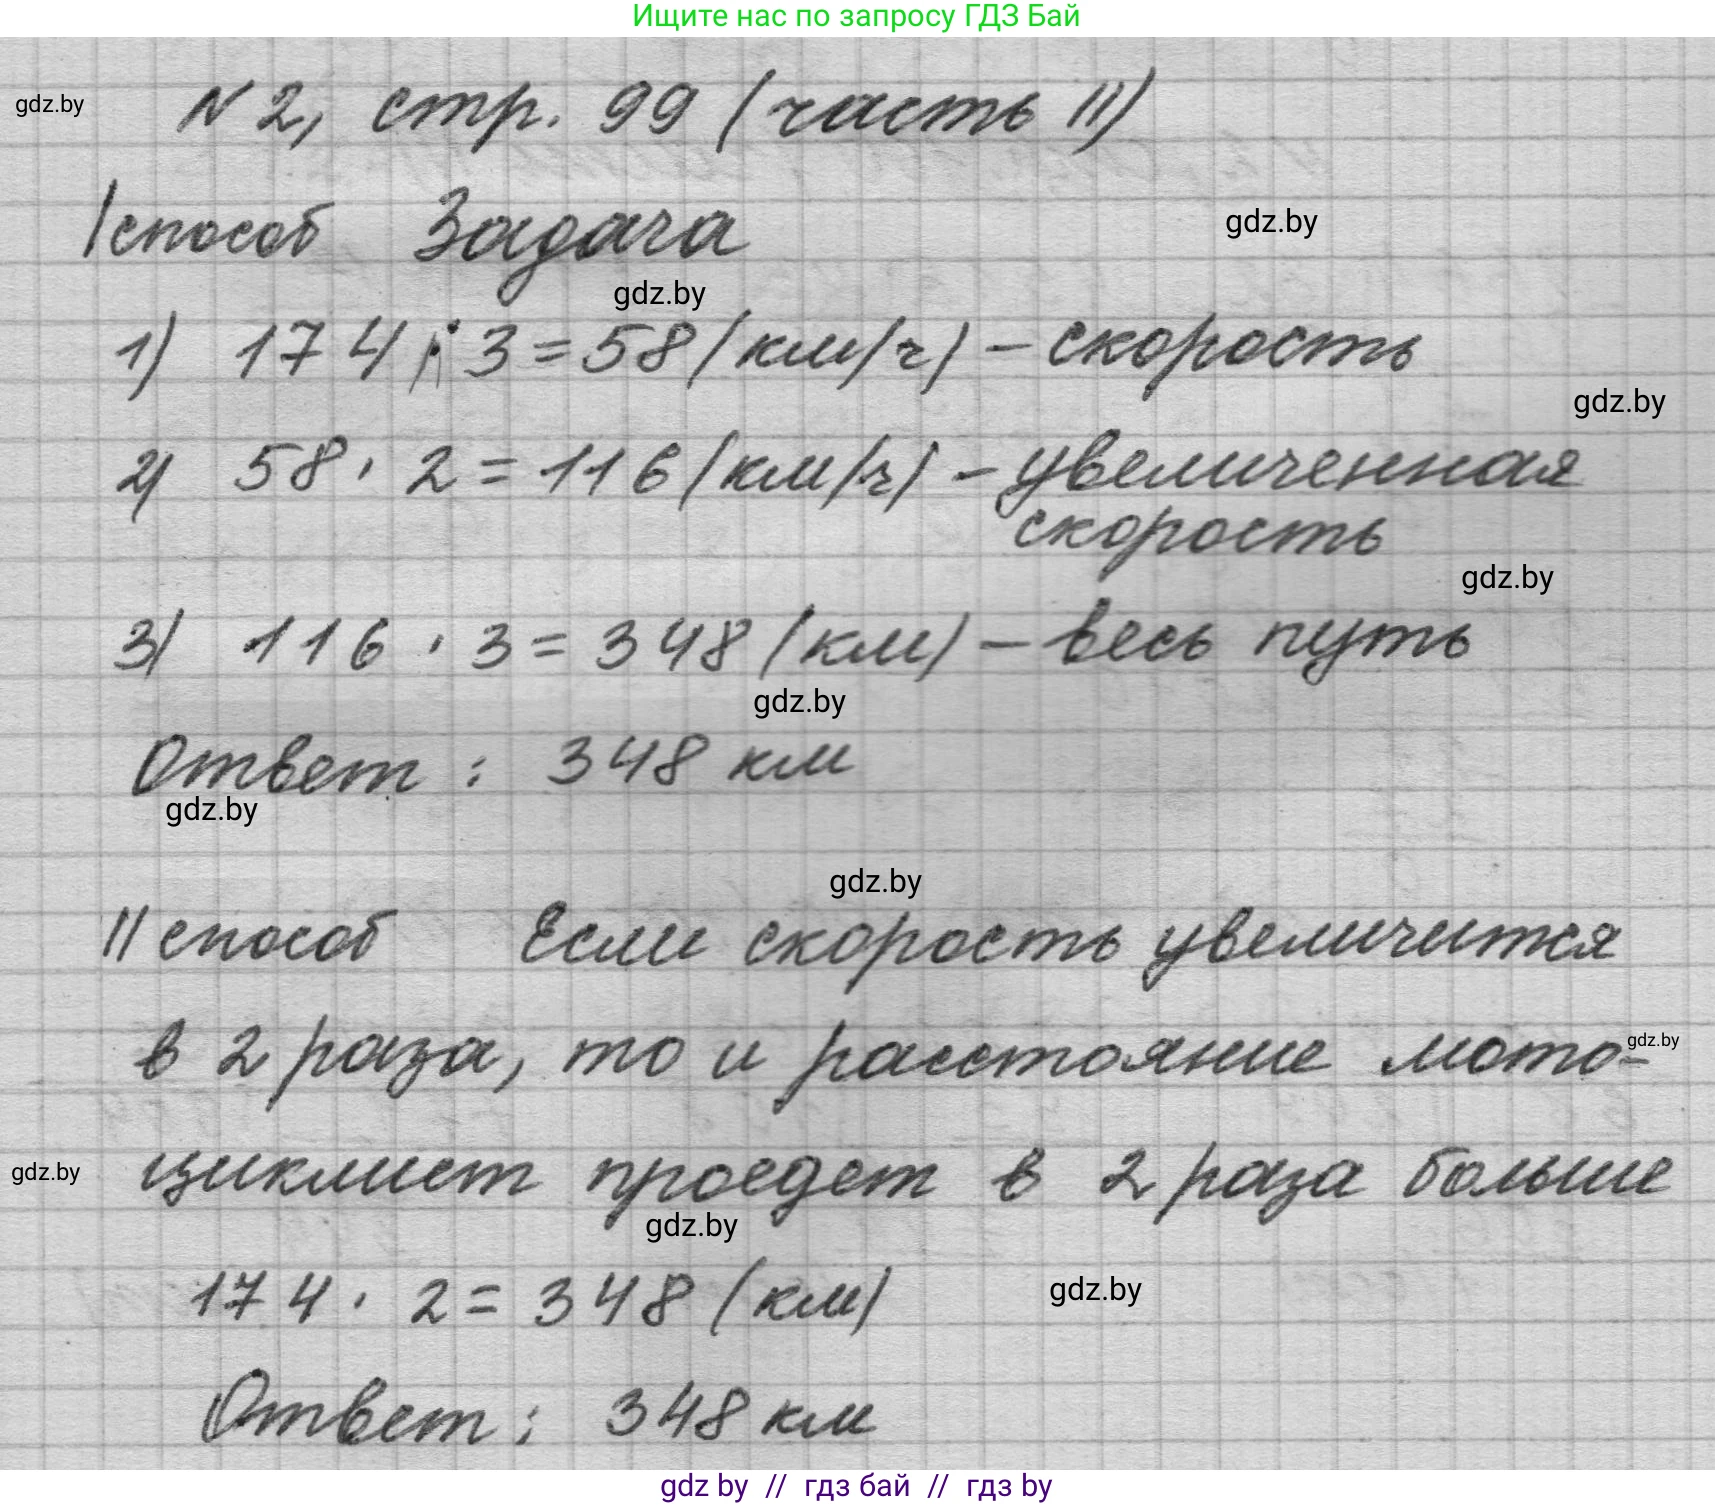 Ищите нас по запросу ГДЗ Бай
gdz.by
N 2, стр. 99 (часть II)
I способ Задача
gdz.by
gdz.by
1) 174 : 3 = 58 (км/ч) – скорость
gdz.by
2) 58 · 2 = 116 (км/ч) – увеличенная
скорость
gdz.by
3) 116 · 3 = 348 (км) – весь путь
gdz.by
Ответ : 348 км
gdz.by
gdz.by
II способ Если скорость увеличится
в 2 раза, то и расстояние мото-
gdz.by
циклист проедет в 2 раза больше
gdz.by
gdz.by
174 · 2 = 348 (км)
gdz.by
Ответ : 348 км
gdz by // гдз бай // гдз by